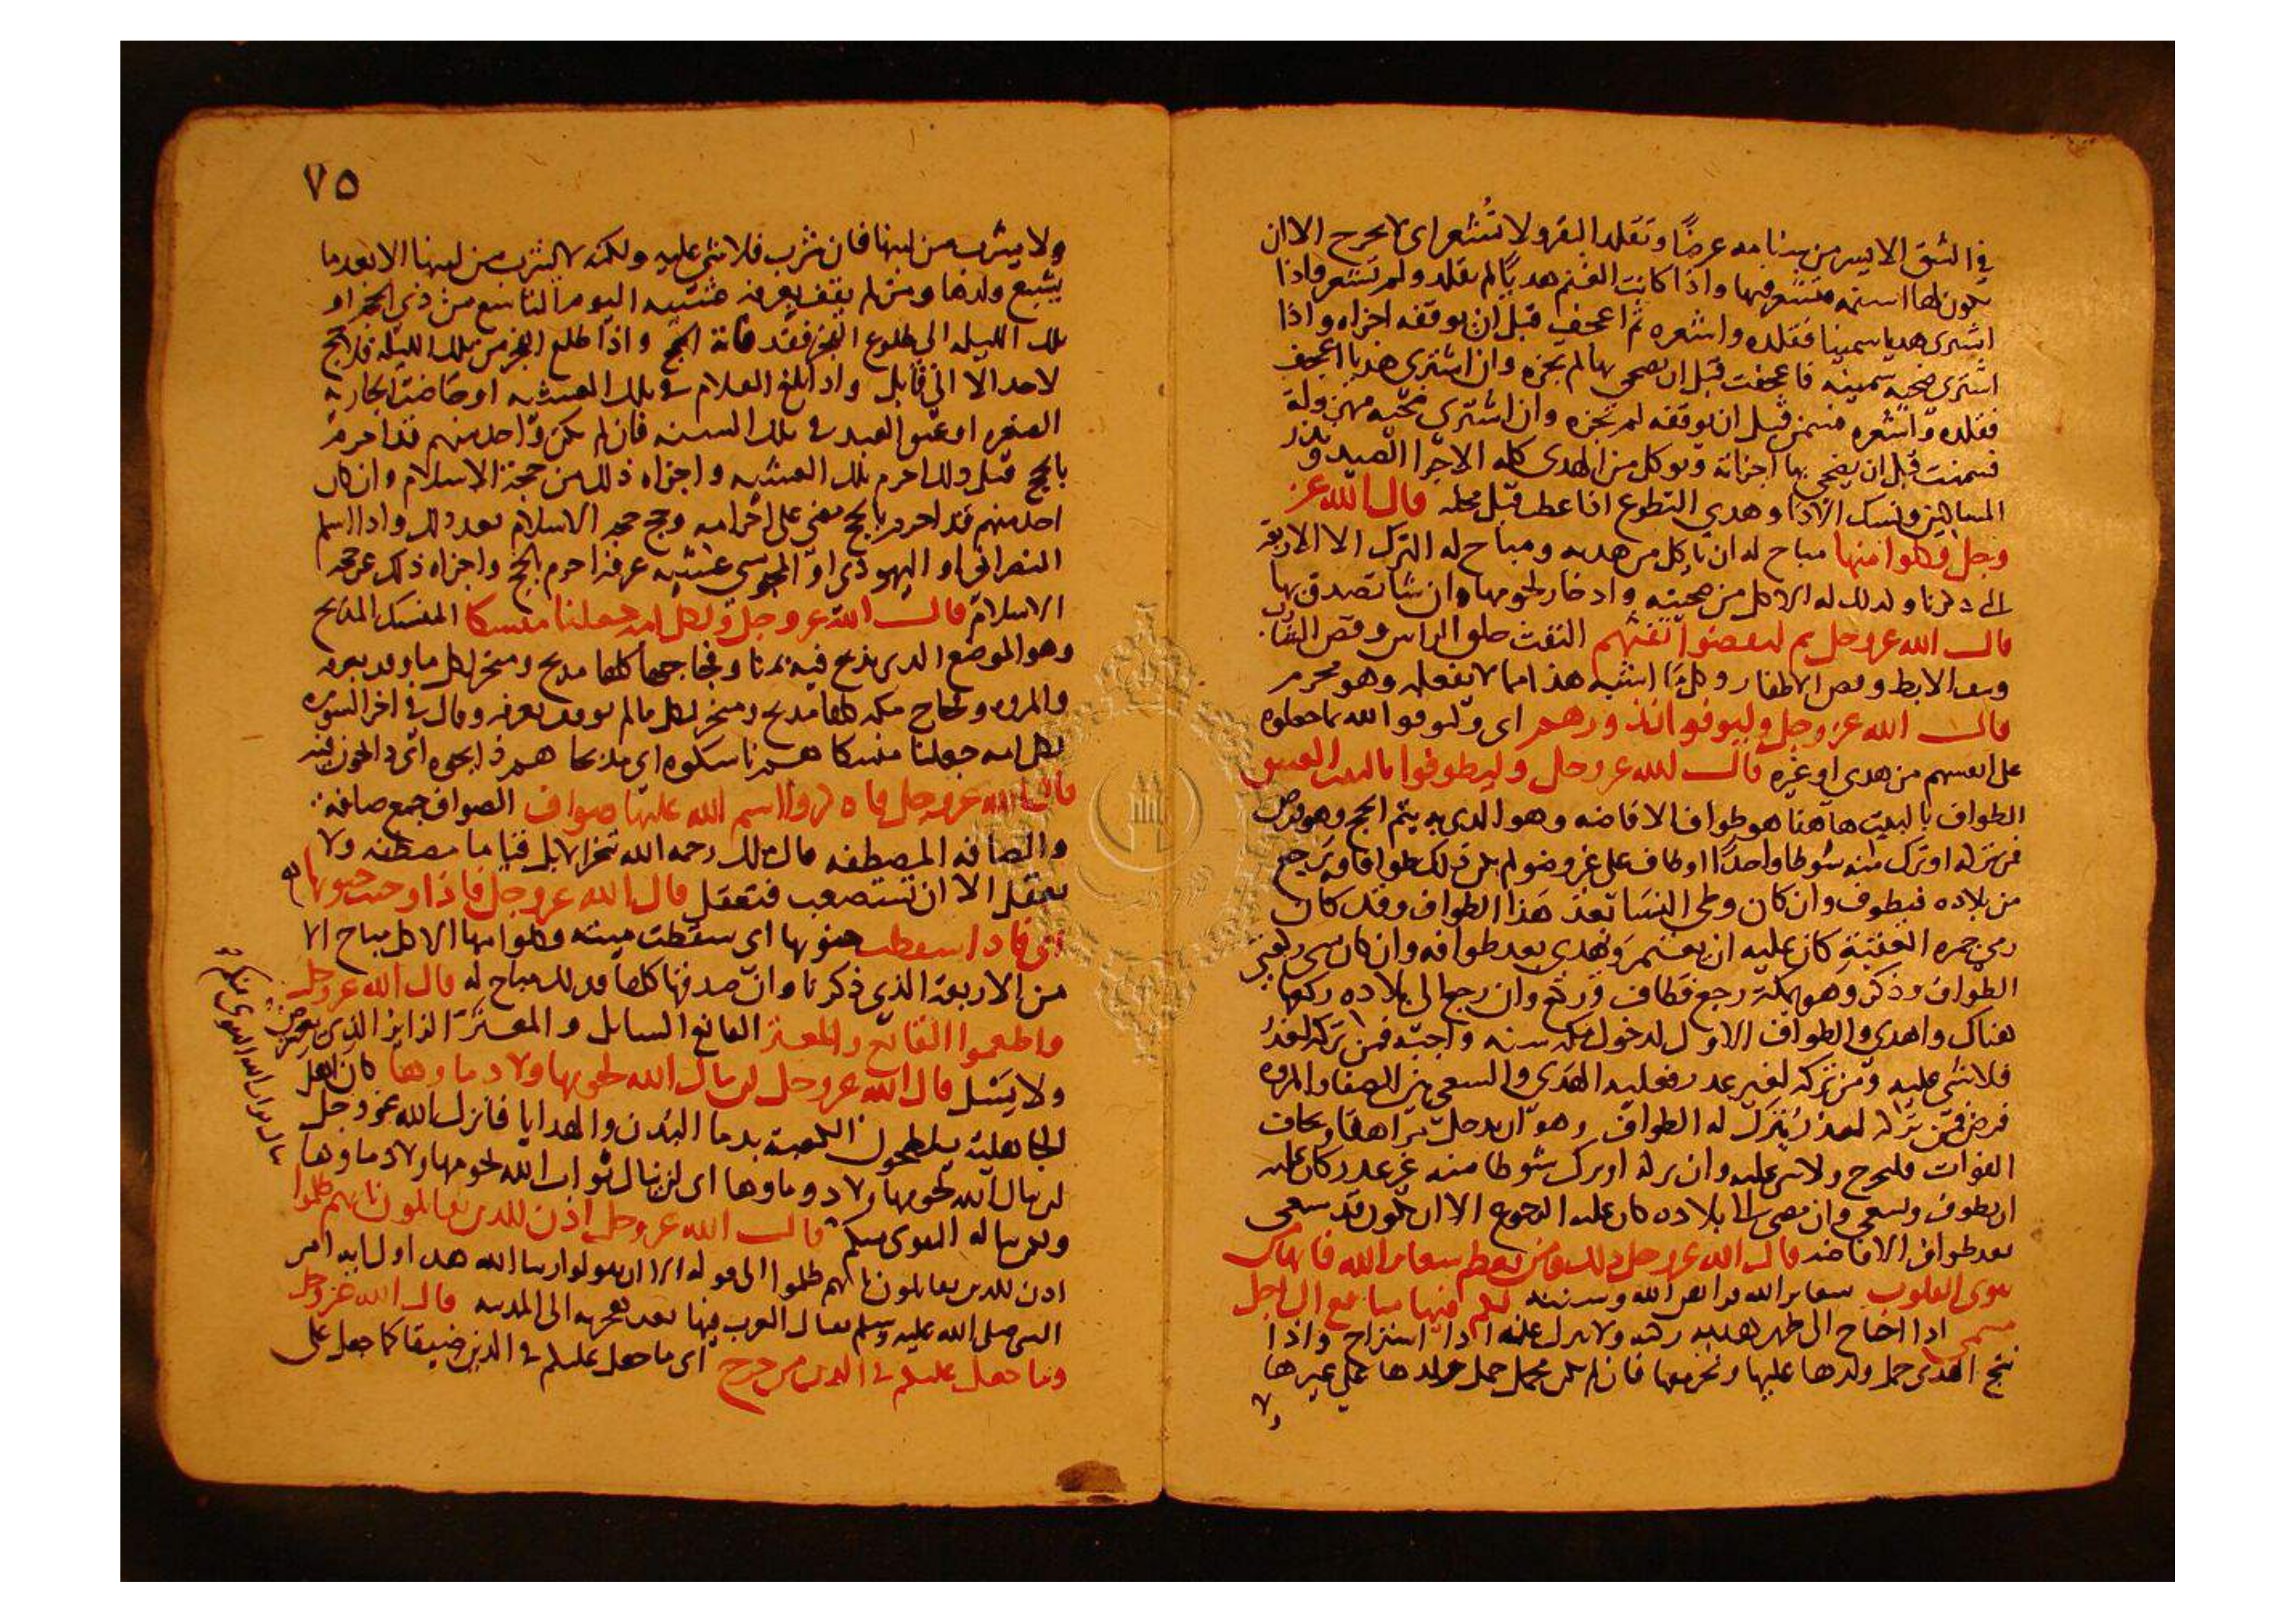 في الشق الايسر من سنامه عرضًا وتقلد البقر ولا تُشعر اي لا تجرح الا ان
تكون لها اسنمه فتشعر فيها واذا كانت الغنم هديًا لم تقلد ولم تشعر فاذا
اشترى هديا سمينا فقلده واشعره ثم اعجف قبل ان يوقفه اجزاه واذا
اشترى ضحيه سمينه فاعجفت قبل ان يضحي بها لم يجزه وان اشترى هديا اعجف
فقلده واشعره فسمن قبل ان يوقفه لم تجزه وان اشترى ضحيه مهزولة
فسمنت قبل ان يضحي بها اجزاته ويوكل من الهدي كله الا جزا الصيد ونذر
المساكين ونسك الاذا وهدي التطوع اذا عطب قبل محله قال الله عز
وجل فكلوا منها مباح له ان ياكل من هديه ومباح له الترك الا الاربعة
التي ذكرنا وكذلك له الاكل من ضحيته وادخار لحومها وان شا تصدق بها
قال الله عز وجل ثم ليقضوا تفثهم التفث حلق الراس وقص الشارب
ونتف الابط وقص الاظفار وكل ما اشبه هذا مما لا يفعله وهو محرم
قال الله عز وجل وليوفوا نذورهم اي وليوفوا الله بما جعلوه
على انفسهم من هدي او غيره قال الله عز وجل وليطوفوا بالبيت العتيق
الطواف بالبيت هاهنا هو طواف الافاضه وهو الذي به يتم الحج وهو فرض
فمن تركه او ترك منه شوطا واحدًا او طاف على غير وضو لم يكن ذلك طوافا ويرجع
من بلاده فيطوف وان كان وطي النسا بعد هذا الطواف وقد كان
رمى جمره العقبة كان عليه ان يعتمر ويهدي بعد طوافه وان كان نسي ركعتي
الطواف وذكر وهو بمكة رجع فطاف وركع وان رجع الى بلاده ركعها
هناك واهدى والطواف الاول لدخول مكه سنه واجبة فمن تركه لعذر
فلا شي عليه ومن تركه لغير عذر فعليه الهدي والسعي بين الصفا والمروه
فرض فمن تركه لعذر يُترك له الطواف وهو ان يدخل مراهقا ويخاف
الفوات فليخرج ولا شي عليه وان تركه او ترك شوطا منه غير عذر كان عليه
ان يطوف ويسعى وان مضى الى بلاده كان عليه الرجوع الا ان يكون قد سعى
بعد طواف الافاضه قال الله عز وجل ذلك ومن يعظم شعاير الله فانها من
تقوى القلوب شعاير الله فرايض الله وسننه لكم فيها منافع الى اجل
مسمى اذا احتاج الى ظهر هديه ركبه ولا ينزل عنه اذا استراح واذا
نتج الهدي حمل ولدها عليها ونحر معها فان لم يكن محمل حمل ولدها على غيرها
ولا
٧٥
ولا يشرب من لبنها فان شرب فلا شي عليه ولكنه لا يشرب من لبنها الا بعدما
يشبع ولدها ومن لم يقف بعرفه عشيه اليوم التاسع من ذي الحجه او
تلك الليله الى طلوع الفجر فقد فاته الحج واذا طلع الفجر من تلك الليله فلا حج
لاحد الا الى قابل واذا بلغ الغلام في تلك العشيه او حاضت الجاريه
الصغيره او عتق العبد في تلك السنه فان لم يكن واحد منهم قد احرم
بالحج قبل ذلك احرم تلك العشيه واجزاه ذلك من حجة الاسلام وان كان
احد منهم قد احرم بالحج مضى على احرامه وحج حجة الاسلام بعد ذلك واذا اسلم
النصراني او اليهوذي او المجوسي عشيه عرفه احرم بالحج واجزاه ذلك عن حجة
الاسلام قال الله عز وجل ولكل امه جعلنا منسكا المنسك المذبح
وهو الموضع الذي يذبح فيه بمنا وفجاجها كلها مذبح ومنحر لكل ما وقف بعرفه
والمروه وفجاج مكه كلها مذبح ومنحر لكل ما لم يوقف بعرفه وقال في اخر السوره
لكل امه جعلنا منسكا هم ناسكوه اي مذبحا هم ذابحوه
قال الله عز وجل فاذكروا اسم الله عليها صواف الصواف جمع صافه
والصافه المصطفه قال مالك رحمه الله تنحر الابل قياما مصطفه ولا
تعقل الا ان تستصعب فتعقل قال الله عز وجل فاذا وجبت جنوبها
اي فاذا سقطت جنوبها اي سقطت ميته وكلوا منها الاكل مباح الا
من الاربعة الذي ذكرنا وان صدقها كلها فذلك مباح له قال الله عز وجل
واطعموا القانع والمعتر القانع السايل والمعتر الزاير الذي يعرض
ولا يسل قال الله عز وجل لن ينال الله لحومها ولا دماوها كان اهل
الجاهلية يلطخون الكعبة بدما البُدن والهدايا فانزل الله عز وجل
لن ينال الله لحومها ولا دماوها اي لن ينال ثواب الله لحومها ولا دماوها
ولكن يناله التقوى منكم قال الله عز وجل اذن للذين يقاتلون بانهم ظلموا
اذن للذين يقاتلون بانهم ظلموا الى قوله الا ان يقولوا ربنا الله هذه اول ايه امر
النبي صلى الله عليه وسلم بقتال العرب فيها بعد هجرته الى المدينه قال الله عز وجل
وما جعل عليكم في الدين من حرج اي ما جعل عليكم في الدين ضيقا كما جعل على